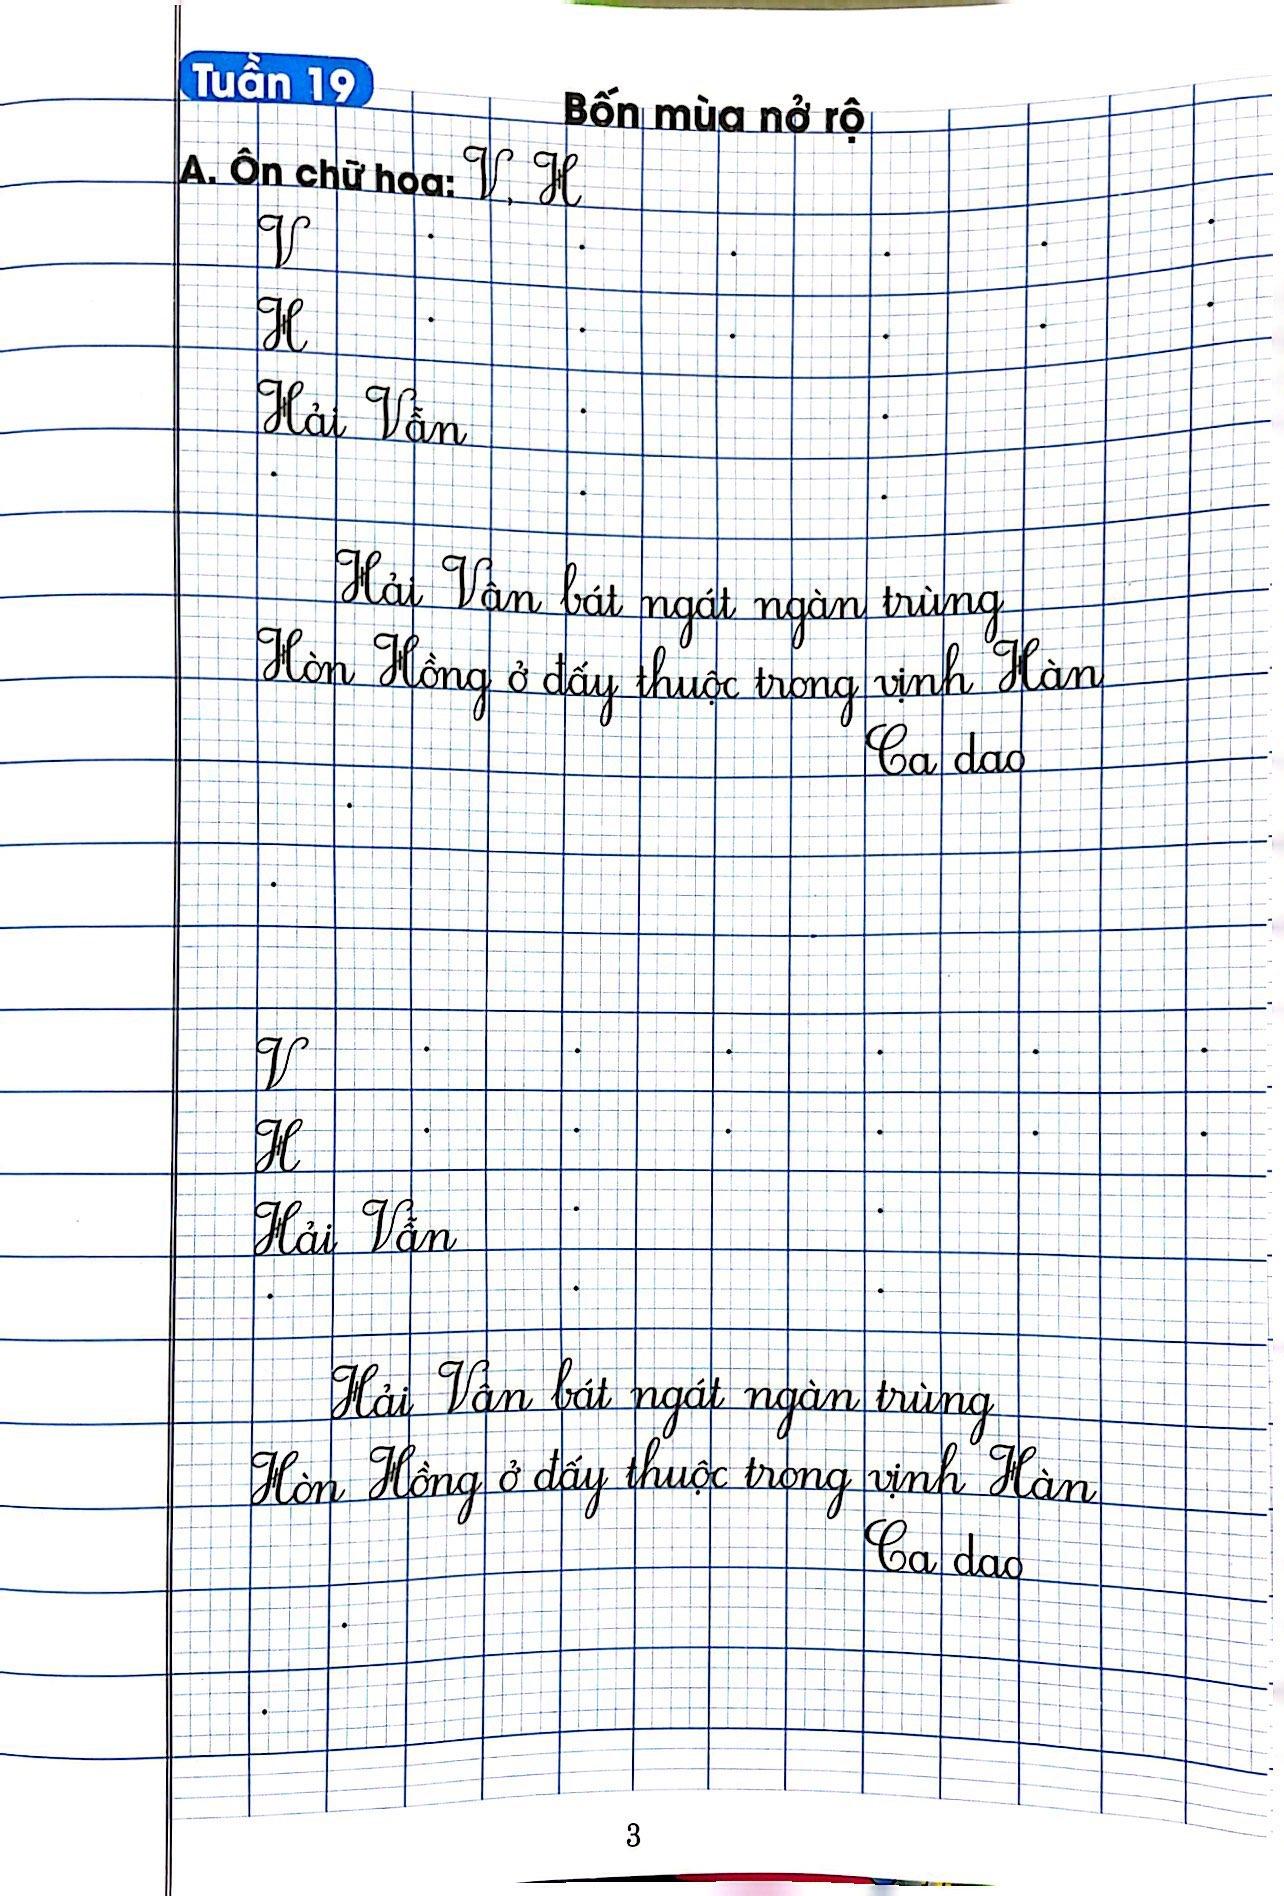 Tuần 19
Bốn mùa nở rộ
A. Ôn chữ hoa: V, H
V
H
Hải Vẫn
Hải Vân bát ngát ngàn trùng
Hòn Hồng ở đấy thuộc trong vịnh Hàn
Ca dao
V
H
Hải Vẫn
Hải Vân bát ngát ngàn trùng
Hòn Hồng ở đấy thuộc trong vịnh Hàn
Ca dao
3